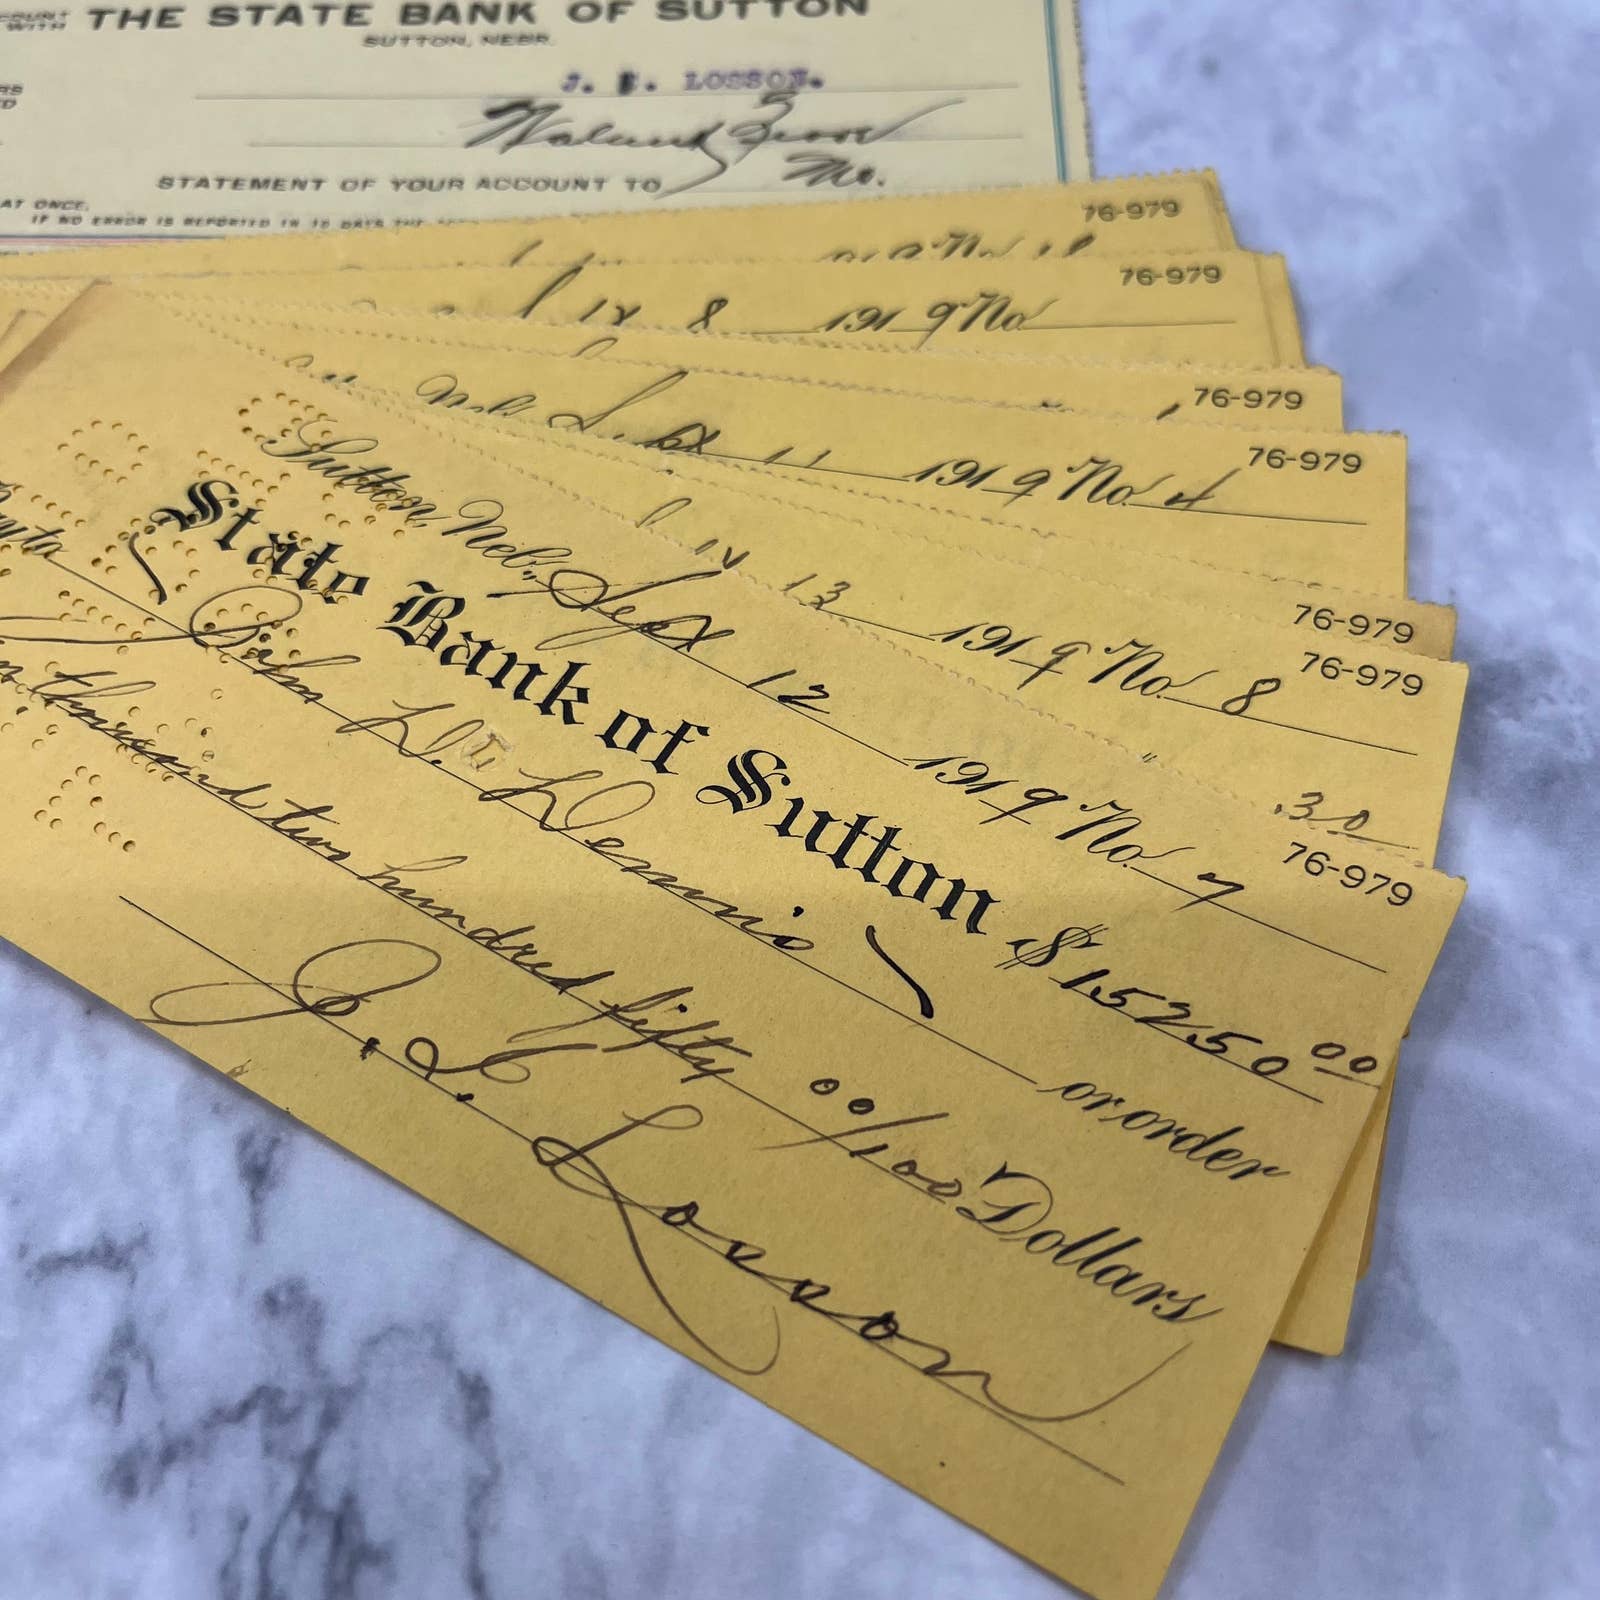 WITH THE STATE BANK OF SUTTON
SUTTON, NEBR.
J. E. LOSSON.
Walnut Grove
Mo.
STATEMENT OF YOUR ACCOUNT TO
AT ONCE.
IF NO ERROR IS REPORTED IN 10 DAYS THE
76-979
No.
76-979
8 1919 No.
76-979
76-979
Neb. Sept 11 1919 No. 4
76-979
13 1919 No. 8
76-979
.30
76-979
Sutton, Neb., Sept 12 1919 No. 7
State Bank of Sutton
John L. Dennis $15250.00
or order
thousand two hundred fifty 00/100 Dollars
J. E. Losson